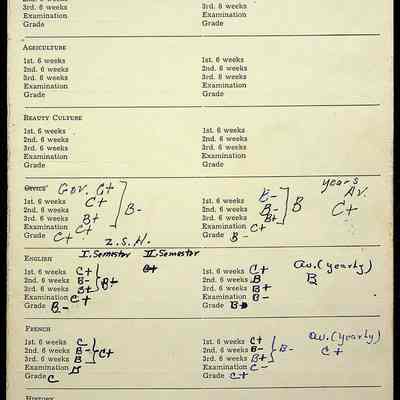 2nd. 6 weeks
3rd. 6 weeks 3rd. 6 weeks
Examination Examination
Grade Grade
AGRICULTURE
1st. 6 weeks 1st. 6 weeks
2nd. 6 weeks 2nd. 6 weeks
3rd. 6 weeks 3rd. 6 weeks
Examination Examination
Grade Grade
BEAUTY CULTURE
1st. 6 weeks 1st. 6 weeks
2nd. 6 weeks 2nd. 6 weeks
3rd. 6 weeks 3rd. 6 weeks
Examination Examination
Grade Grade
CIVICS Gov. C+ years
1st. 6 weeks C+ 1st. 6 weeks B- Av.
2nd. 6 weeks B- 2nd. 6 weeks B- B C+
3rd. 6 weeks B+ 3rd. 6 weeks B+
Examination C+ Examination C+
Grade C+ C+ Grade B-
Z.S.H.
ENGLISH I. Semester II. Semester
1st. 6 weeks C+ 1st. 6 weeks C+ av. (yearly)
2nd. 6 weeks B- B+ 2nd. 6 weeks B B
3rd. 6 weeks B+ 3rd. 6 weeks B+
Examination C+ Examination B-
Grade B- Grade B
FRENCH
1st. 6 weeks C 1st. 6 weeks C+ av. (yearly)
2nd. 6 weeks B- C+ 2nd. 6 weeks B- B- C+
3rd. 6 weeks B 3rd. 6 weeks B+
Examination B Examination C-
Grade C Grade C+
HISTORY